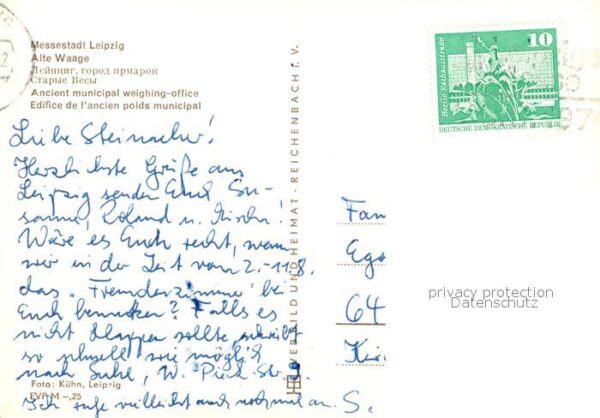 Messestadt Leipzig
Alte Waage
Лейпциг, город ярмарок
Старые Весы
Ancient municipal weighing-office
Edifice de l'ancien poids municipal
Liebe Steinacher!
Herzlichste Grüße aus
Leipzig senden Euch Su-
sanne, Roland u. Mischa!
Wäre es Euch recht, wenn
wir in der Zeit vom 2.-11.8.
das "Fremdenzimme" bei
Euch benutzen? Falls es
nicht klappen sollte, schreibt
so schnell wie möglich
nach Suhl, W. Pieck Str.
Ich rufe vielleicht auch nochmal an. S.
Foto: Kühn, Leipzig
EVP M -,25
BILD UND HEIMAT · REICHENBACH I. V.
10
Berlin Rathausstraße
DEUTSCHE DEMOKRATISCHE REPUBLIK
Fam
Ego
64
privacy protection
Datenschutz